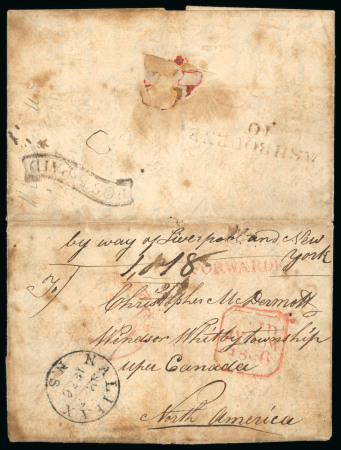 POST PAID
ASHBOURNE
10
by way of Liverpool and New
York
FORWARDED
Christopher McDermott
Windsor Whitby township
uper Canada
North America
HALIFAX
N.S